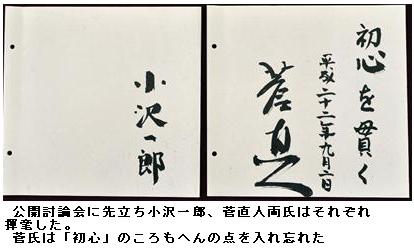 初心を貫く
平成二十二年九月二日
菅直人
小沢一郎
公開討論会に先立ち小沢一郎、菅直人両氏はそれぞれ
揮毫した。
菅氏は「初心」のころもへんの点を入れ忘れた